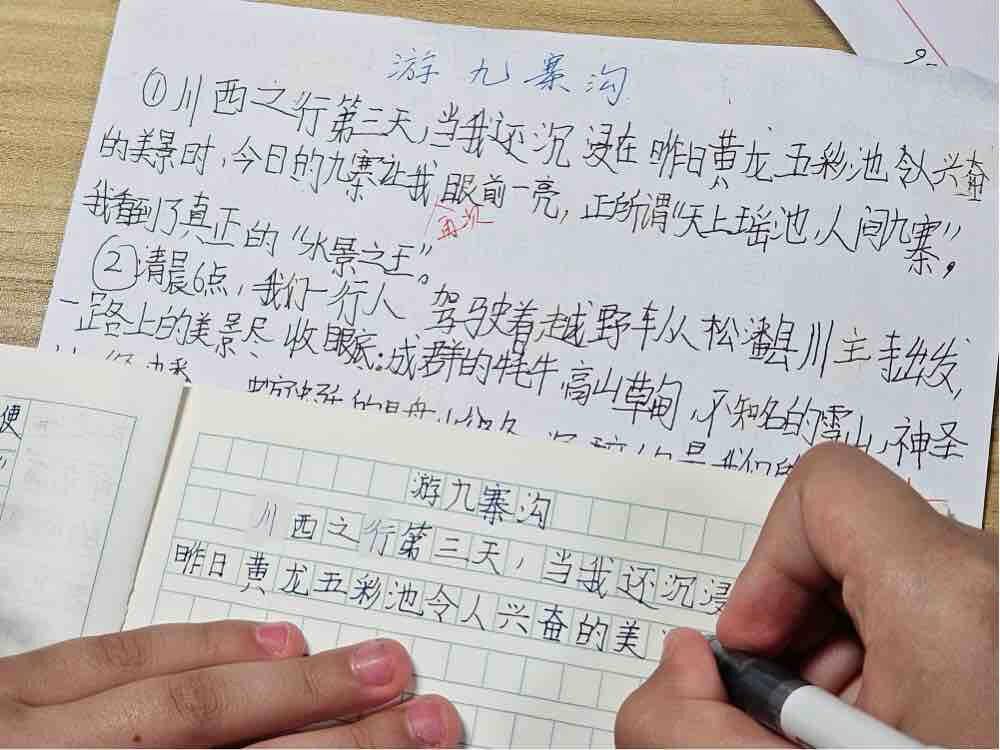 游九寨沟
①川西之行第三天,当我还沉浸在昨日黄龙五彩池令人兴奋
的美景时,今日的九寨让我眼前一亮,正所谓“天上瑶池,人间九寨”,
再次
我看到了真正的“水景之王”。
②清晨6点,我们一行人驾驶着越野车从松潘县川主寺出发,
一路上的美景尽收眼底:成群的牦牛,高山草甸,不知名的雪山,神圣
便
游九寨沟
川西之行第三天,当我还沉浸
昨日黄龙五彩池令人兴奋的美